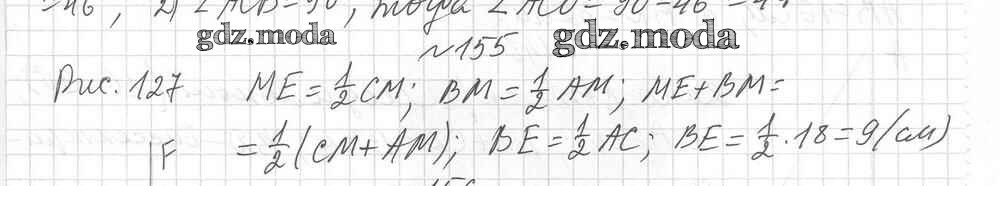 =46°, 2) ∠ACB=90°, тогда ∠ACO=90°-46°=44°
gdz.moda gdz.moda
~155
Рис. 127 ME=½CM; BM=½AM; ME+BM=
F =½(CM+AM); BE=½AC; BE=½·18=9(см)